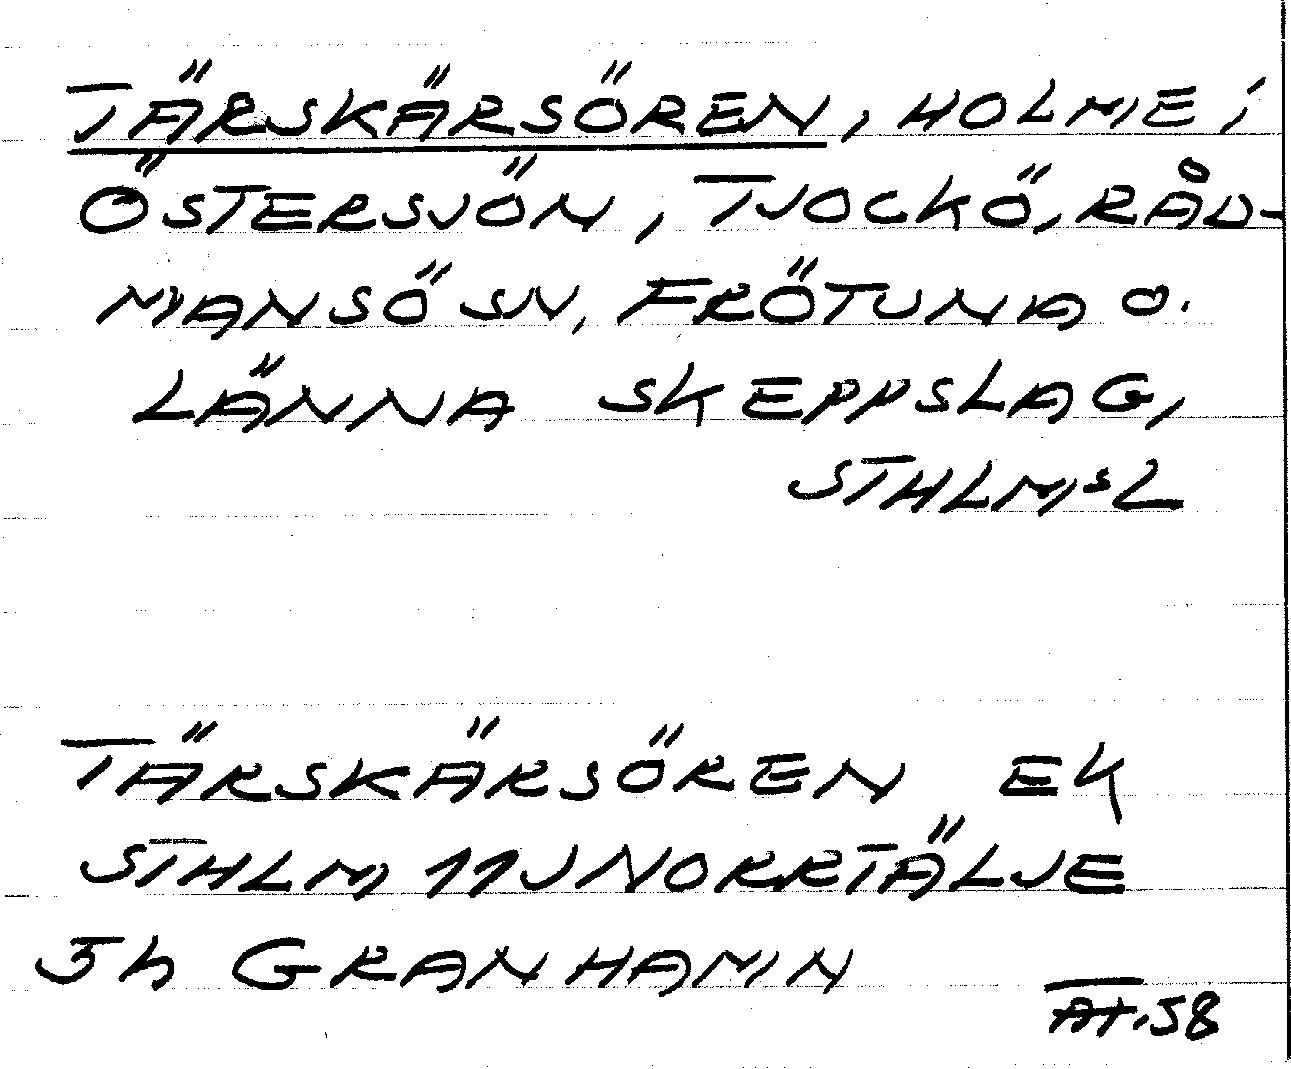 TÄRSKÄRSÖREN, HOLME i
ÖSTERSJÖN, TJOCKÖ, RÅD-
MANSÖ SN, FRÖTUNA O.
LÄNNA SKEPPSLAG,
STHLMSL
TÄRSKÄRSÖREN EK
STHLM 11J NORRTÄLJE
5h GRANHAMN
58